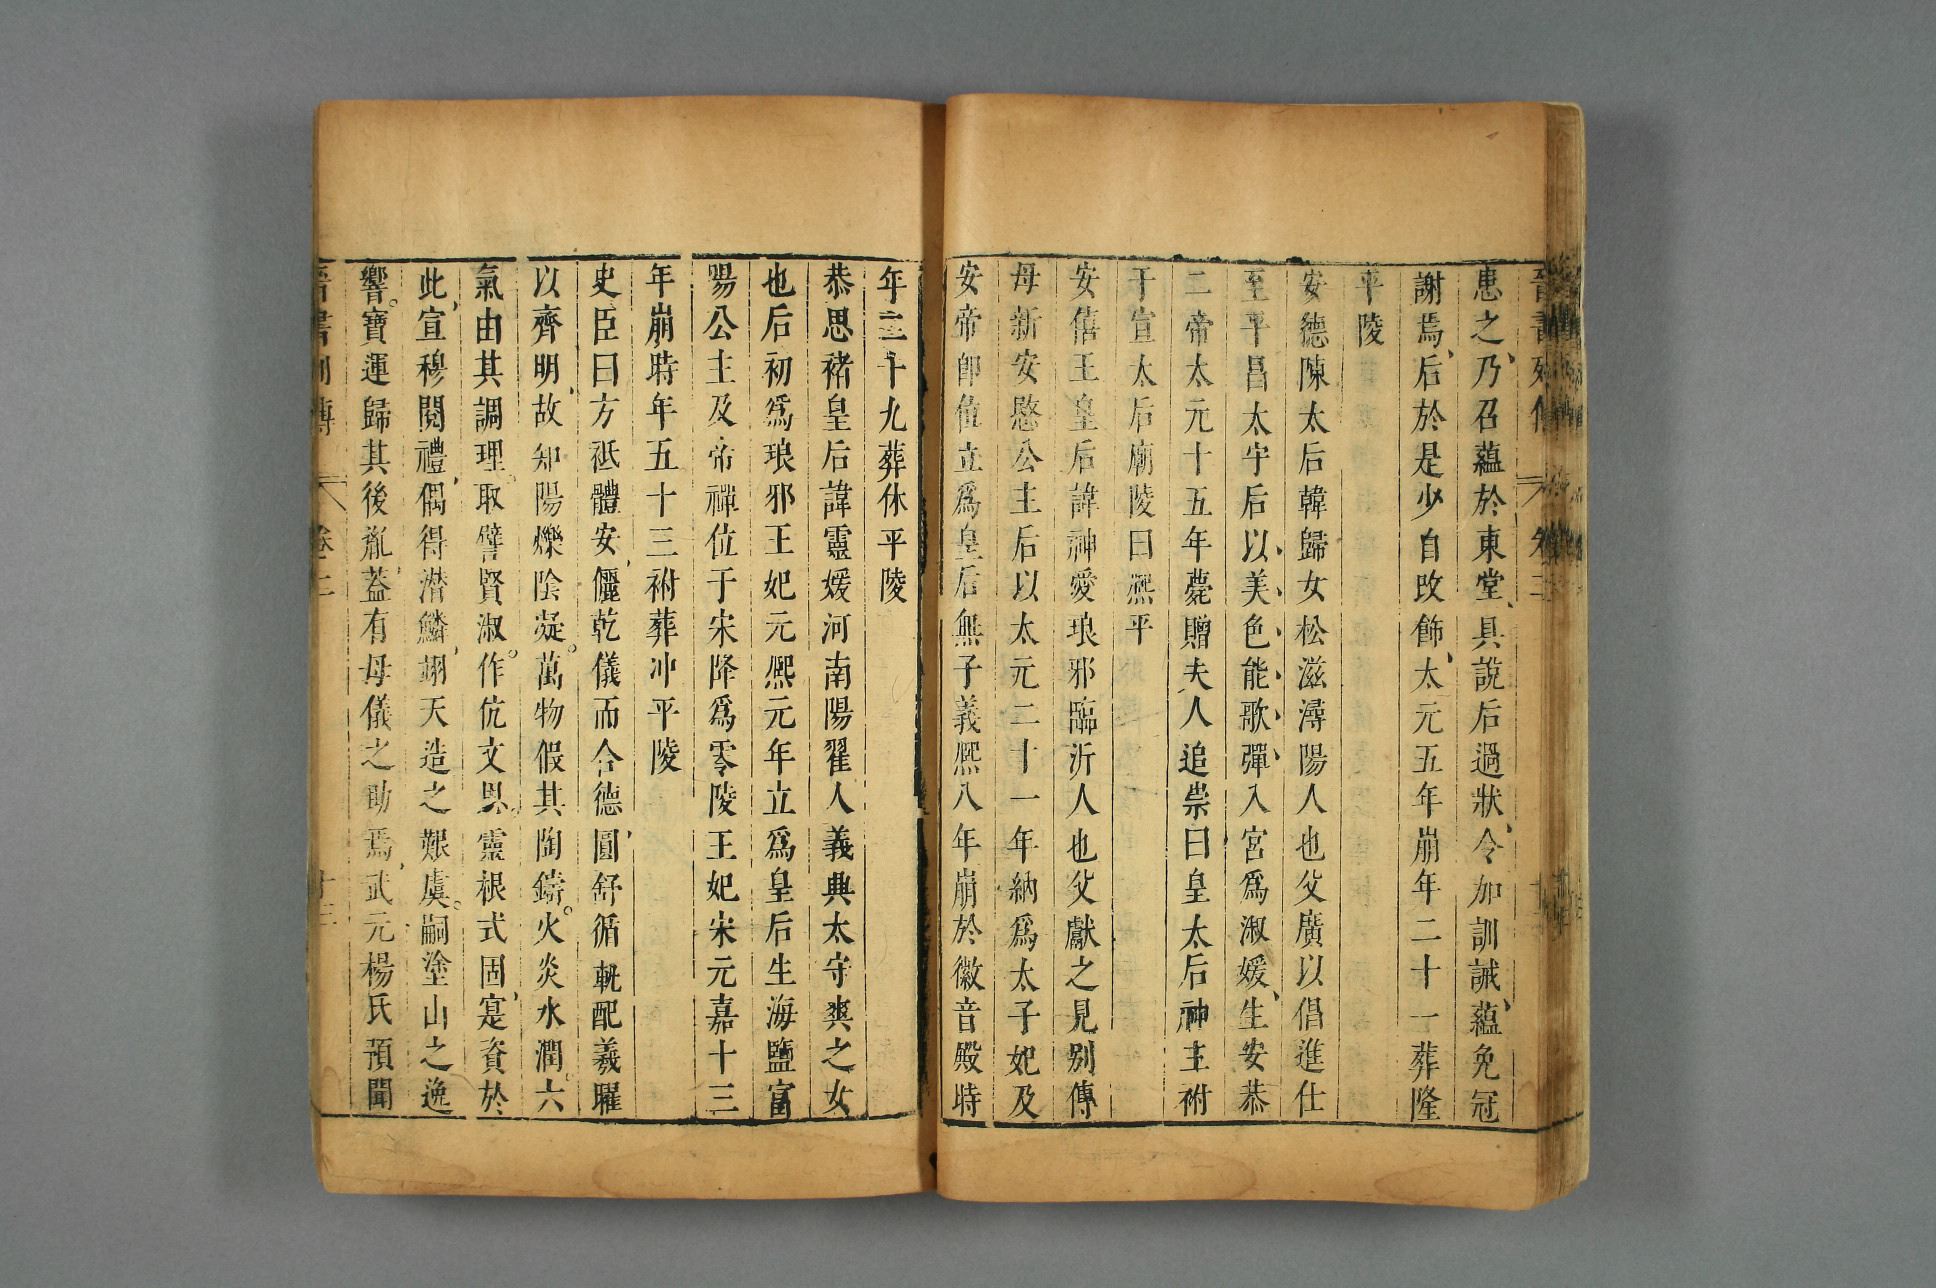 晉書列傳 卷二
患之乃召蘊於東堂具說后過狀令加訓誡蘊免冠
謝焉后於是少自改飾太元五年崩年二十一葬隆
平陵
安德陳太后韓歸女松滋潯陽人也父廣以倡進仕
至平昌太守后以美色能歌彈入宮爲淑媛生安恭
二帝太元十五年薨贈夫人追崇曰皇太后神主祔
于宣太后廟陵曰熙平
安僖王皇后諱神愛琅邪臨沂人也父獻之見別傳
母新安愍公主后以太元二十一年納爲太子妃及
安帝卽位立爲皇后無子義熙八年崩於徽音殿時
年二十九葬休平陵
恭思褚皇后諱靈媛河南陽翟人義興太守爽之女
也后初爲琅邪王妃元熙元年立爲皇后生海鹽富
陽公主及帝禪位于宋降爲零陵王妃宋元嘉十三
年崩時年五十三祔葬冲平陵
史臣曰方祗體安儷乾儀而合德圓舒循軌配羲曜
以齊明故知陽爍陰凝萬物假其陶鑄火炎水潤六
氣由其調理取譬賢淑作伉文思靈根式固寔資於
此宣穆閱禮偶得潛鱗翊天造之艱虞嗣塗山之逸
響寶運歸其後胤蓋有母儀之助焉武元楊氏預聞
晉書列傳 卷二 十三